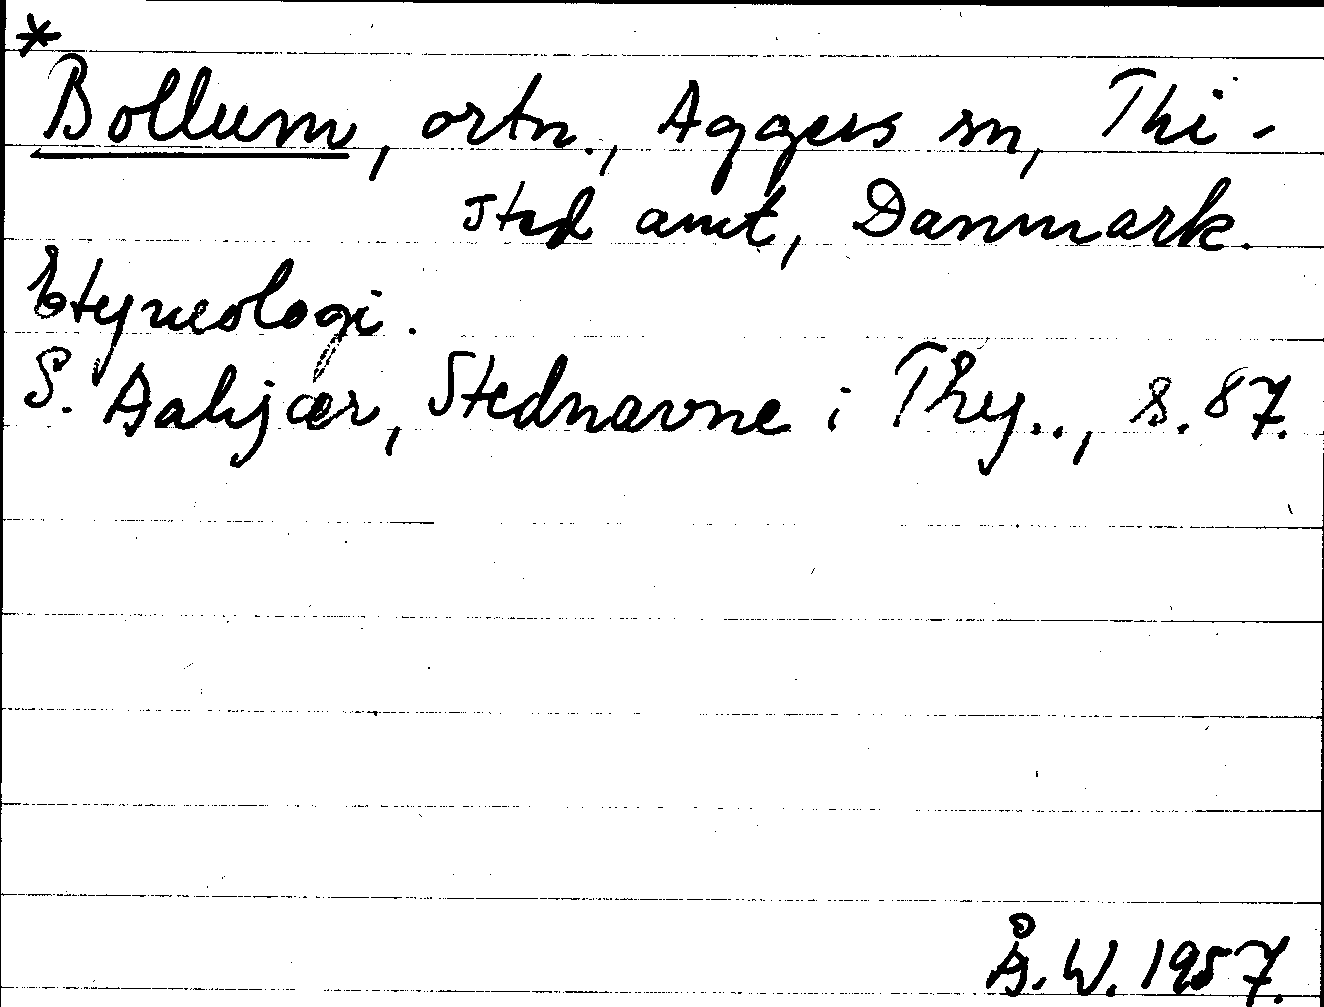 *
Bollum, ortn., Aggers sn, Thi-
sted amt, Danmark.
Etymologi.
S. Aakjær, Stednavne i Thy.., s. 87.
Å. W. 1957.